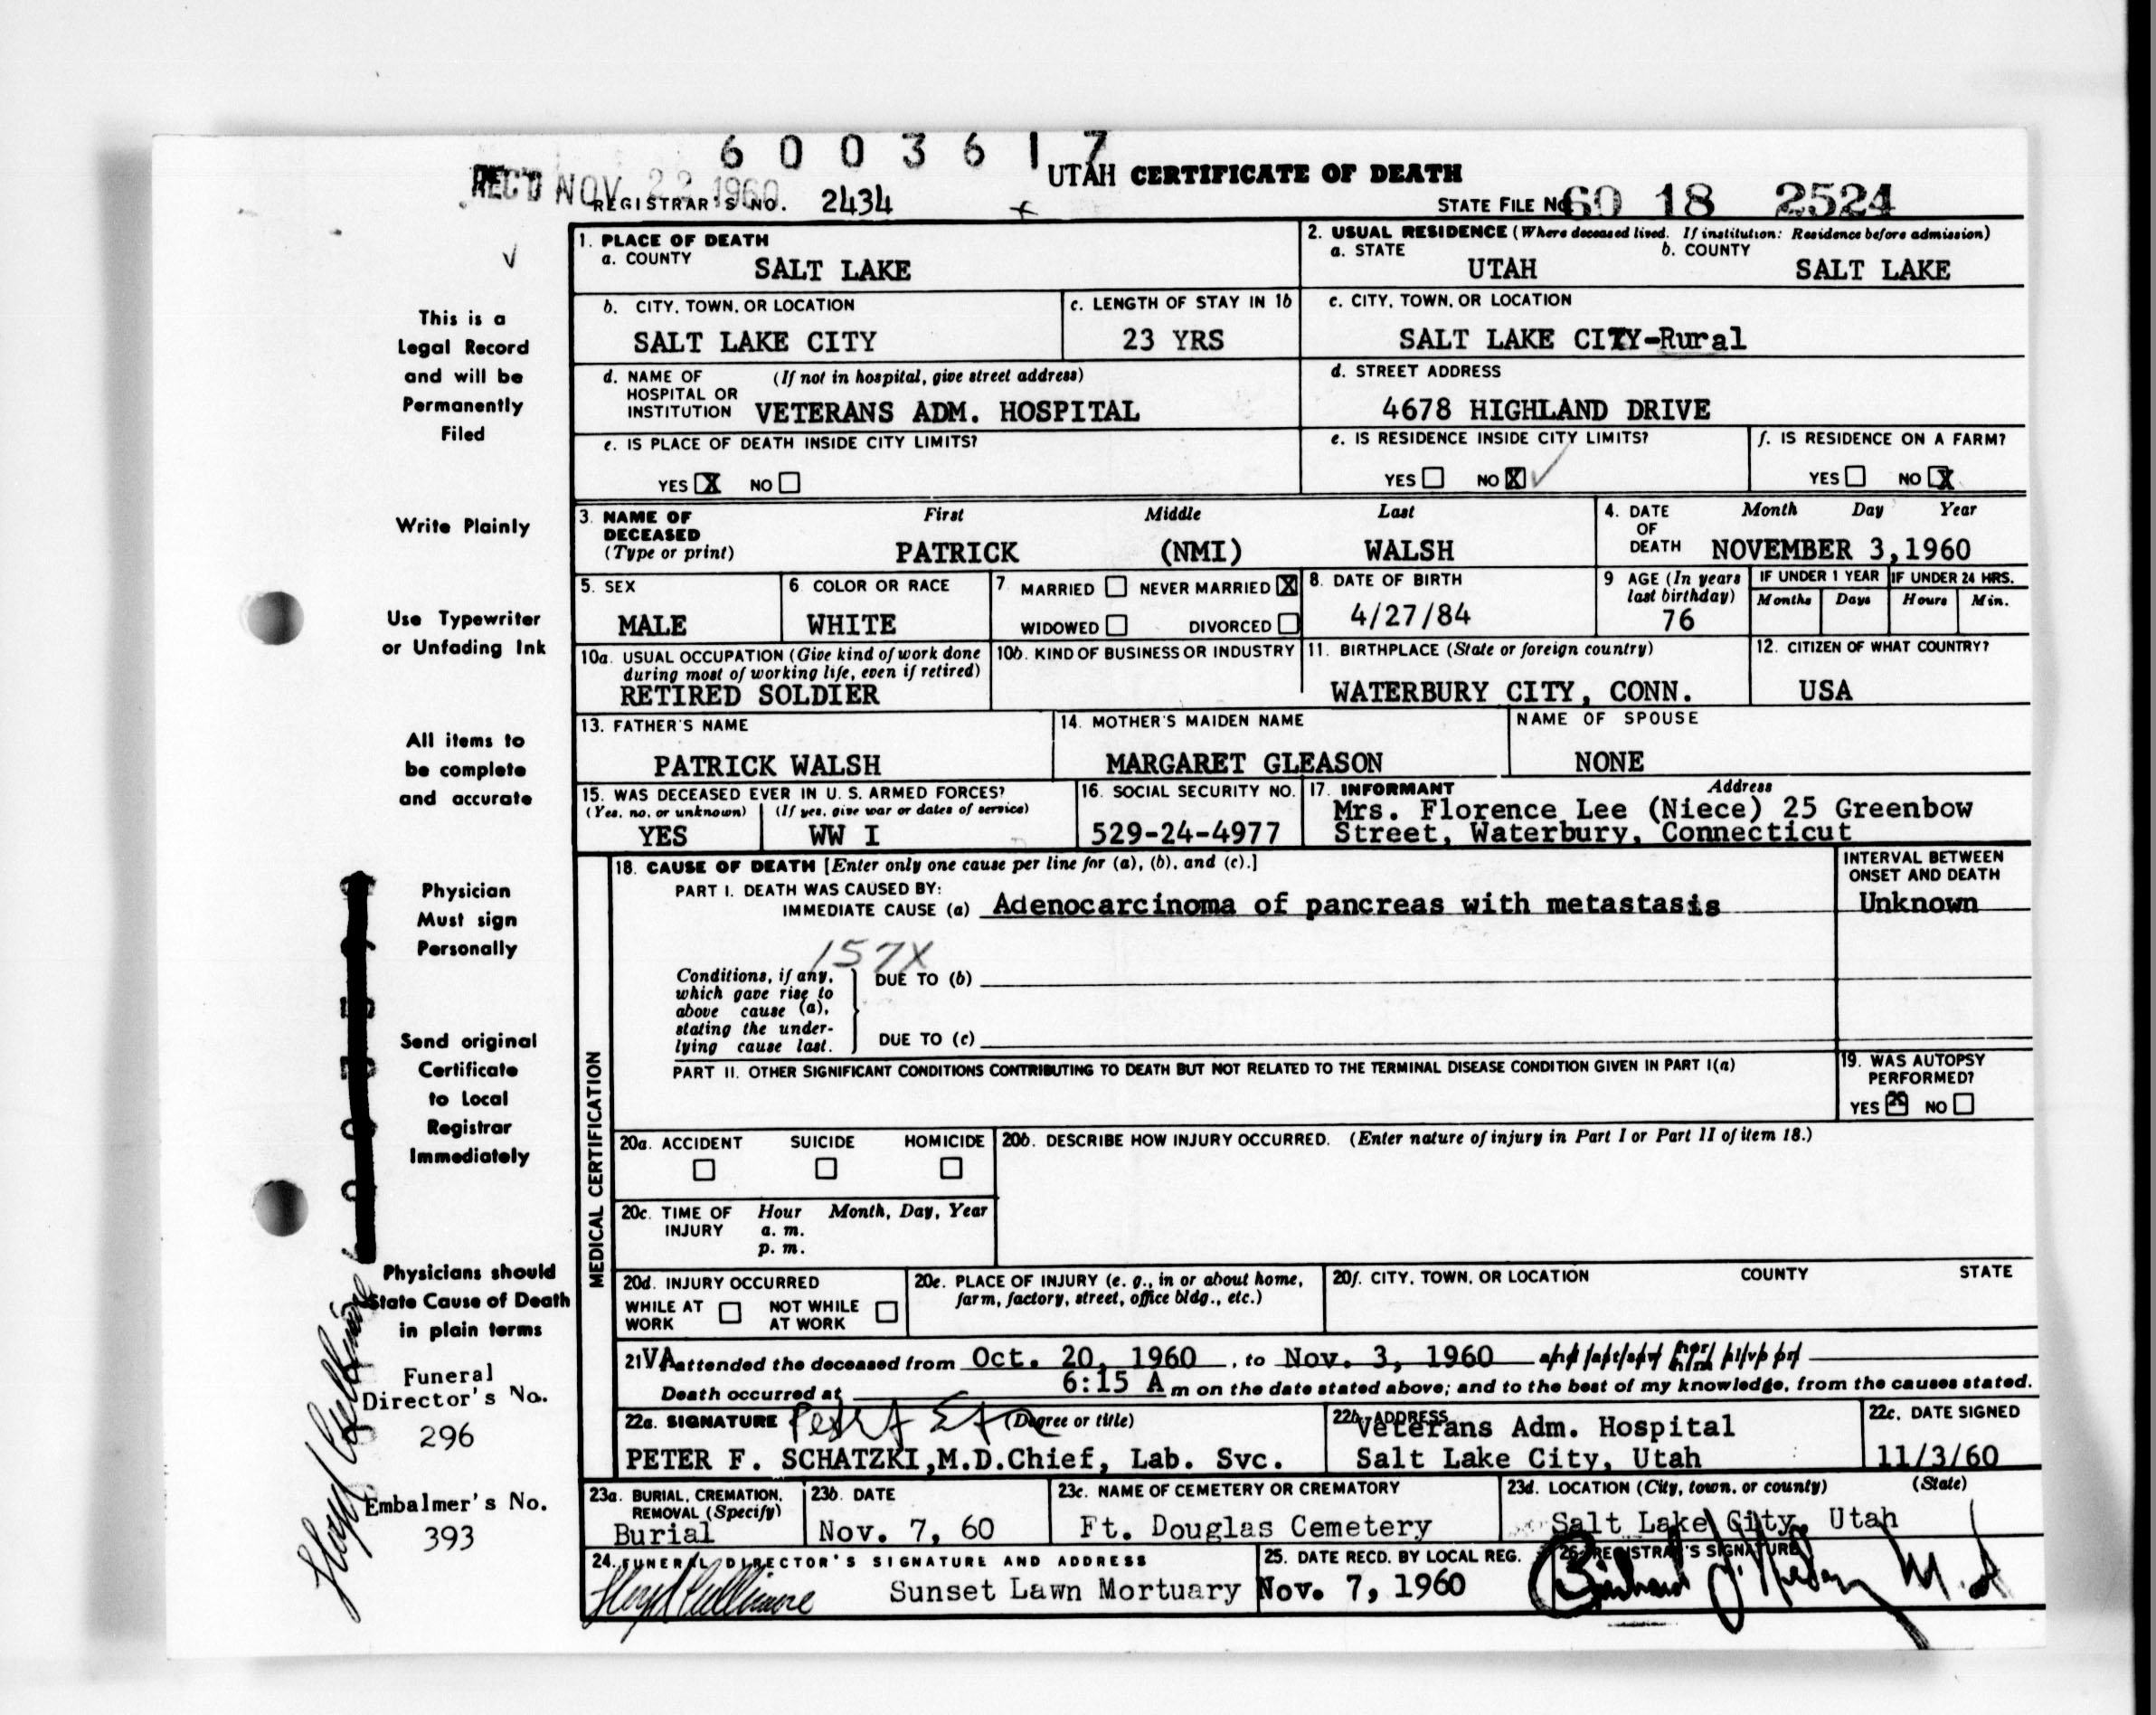 6 0 0 3 6 1 7
REC'D NOV 22 1960
UTAH CERTIFICATE OF DEATH
REGISTRAR'S NO. 2434
STATE FILE NO. 60 18 2524
1. PLACE OF DEATH
a. COUNTY SALT LAKE
2. USUAL RESIDENCE (Where deceased lived. If institution: Residence before admission)
a. STATE UTAH b. COUNTY SALT LAKE
b. CITY, TOWN, OR LOCATION
SALT LAKE CITY
c. LENGTH OF STAY IN 1b
23 YRS
c. CITY, TOWN, OR LOCATION
SALT LAKE CITY-Rural
d. NAME OF HOSPITAL OR INSTITUTION (If not in hospital, give street address)
VETERANS ADM. HOSPITAL
d. STREET ADDRESS
4678 HIGHLAND DRIVE
e. IS PLACE OF DEATH INSIDE CITY LIMITS?
YES X NO
e. IS RESIDENCE INSIDE CITY LIMITS?
YES NO X
f. IS RESIDENCE ON A FARM?
YES NO X
3. NAME OF DECEASED (Type or print)
First Middle Last
PATRICK (NMI) WALSH
4. DATE OF DEATH Month Day Year
NOVEMBER 3,1960
5. SEX
MALE
6 COLOR OR RACE
WHITE
7 MARRIED NEVER MARRIED X
WIDOWED DIVORCED
8. DATE OF BIRTH
4/27/84
9 AGE (In years last birthday)
76
IF UNDER 1 YEAR
Months Days
IF UNDER 24 HRS.
Hours Min.
10a. USUAL OCCUPATION (Give kind of work done during most of working life, even if retired)
RETIRED SOLDIER
10b. KIND OF BUSINESS OR INDUSTRY
11. BIRTHPLACE (State or foreign country)
WATERBURY CITY, CONN.
12. CITIZEN OF WHAT COUNTRY?
USA
13. FATHER'S NAME
PATRICK WALSH
14. MOTHER'S MAIDEN NAME
MARGARET GLEASON
NAME OF SPOUSE
NONE
15. WAS DECEASED EVER IN U. S. ARMED FORCES?
(Yes, no, or unknown) (If yes, give war or dates of service)
YES WW I
16. SOCIAL SECURITY NO.
529-24-4977
17. INFORMANT Address
Mrs. Florence Lee (Niece) 25 Greenbow
Street, Waterbury, Connecticut
MEDICAL CERTIFICATION
18. CAUSE OF DEATH [Enter only one cause per line for (a), (b), and (c).]
PART I. DEATH WAS CAUSED BY:
IMMEDIATE CAUSE (a) Adenocarcinoma of pancreas with metastasis
INTERVAL BETWEEN ONSET AND DEATH
Unknown
157X
Conditions, if any, which gave rise to above cause (a), stating the under-lying cause last.
DUE TO (b)
DUE TO (c)
PART II. OTHER SIGNIFICANT CONDITIONS CONTRIBUTING TO DEATH BUT NOT RELATED TO THE TERMINAL DISEASE CONDITION GIVEN IN PART I(a)
19. WAS AUTOPSY PERFORMED?
YES X NO
20a. ACCIDENT SUICIDE HOMICIDE
20b. DESCRIBE HOW INJURY OCCURRED. (Enter nature of injury in Part I or Part II of item 18.)
20c. TIME OF INJURY Hour Month, Day, Year
a. m.
p. m.
20d. INJURY OCCURRED
WHILE AT WORK NOT WHILE AT WORK
20e. PLACE OF INJURY (e. g., in or about home, farm, factory, street, office bldg., etc.)
20f. CITY, TOWN, OR LOCATION COUNTY STATE
21 VA attended the deceased from Oct. 20, 1960, to Nov. 3, 1960
Death occurred at 6:15 A m on the date stated above; and to the best of my knowledge, from the causes stated.
22a. SIGNATURE (Degree or title)
PETER F. SCHATZKI,M.D.Chief, Lab. Svc.
22b. ADDRESS
Veterans Adm. Hospital
Salt Lake City, Utah
22c. DATE SIGNED
11/3/60
23a. BURIAL, CREMATION, REMOVAL (Specify)
Burial
23b. DATE
Nov. 7, 60
23c. NAME OF CEMETERY OR CREMATORY
Ft. Douglas Cemetery
23d. LOCATION (City, town, or county) (State)
Salt Lake City, Utah
24. FUNERAL DIRECTOR'S SIGNATURE AND ADDRESS
Sunset Lawn Mortuary
25. DATE RECD. BY LOCAL REG.
Nov. 7, 1960
26. REGISTRAR'S SIGNATURE
M.d
This is a
Legal Record
and will be
Permanently
Filed
Write Plainly
Use Typewriter
or Unfading Ink
All items to
be complete
and accurate
Physician
Must sign
Personally
Send original
Certificate
to Local
Registrar
Immediately
Physicians should
State Cause of Death
in plain terms
Funeral
Director's No.
296
Embalmer's No.
393